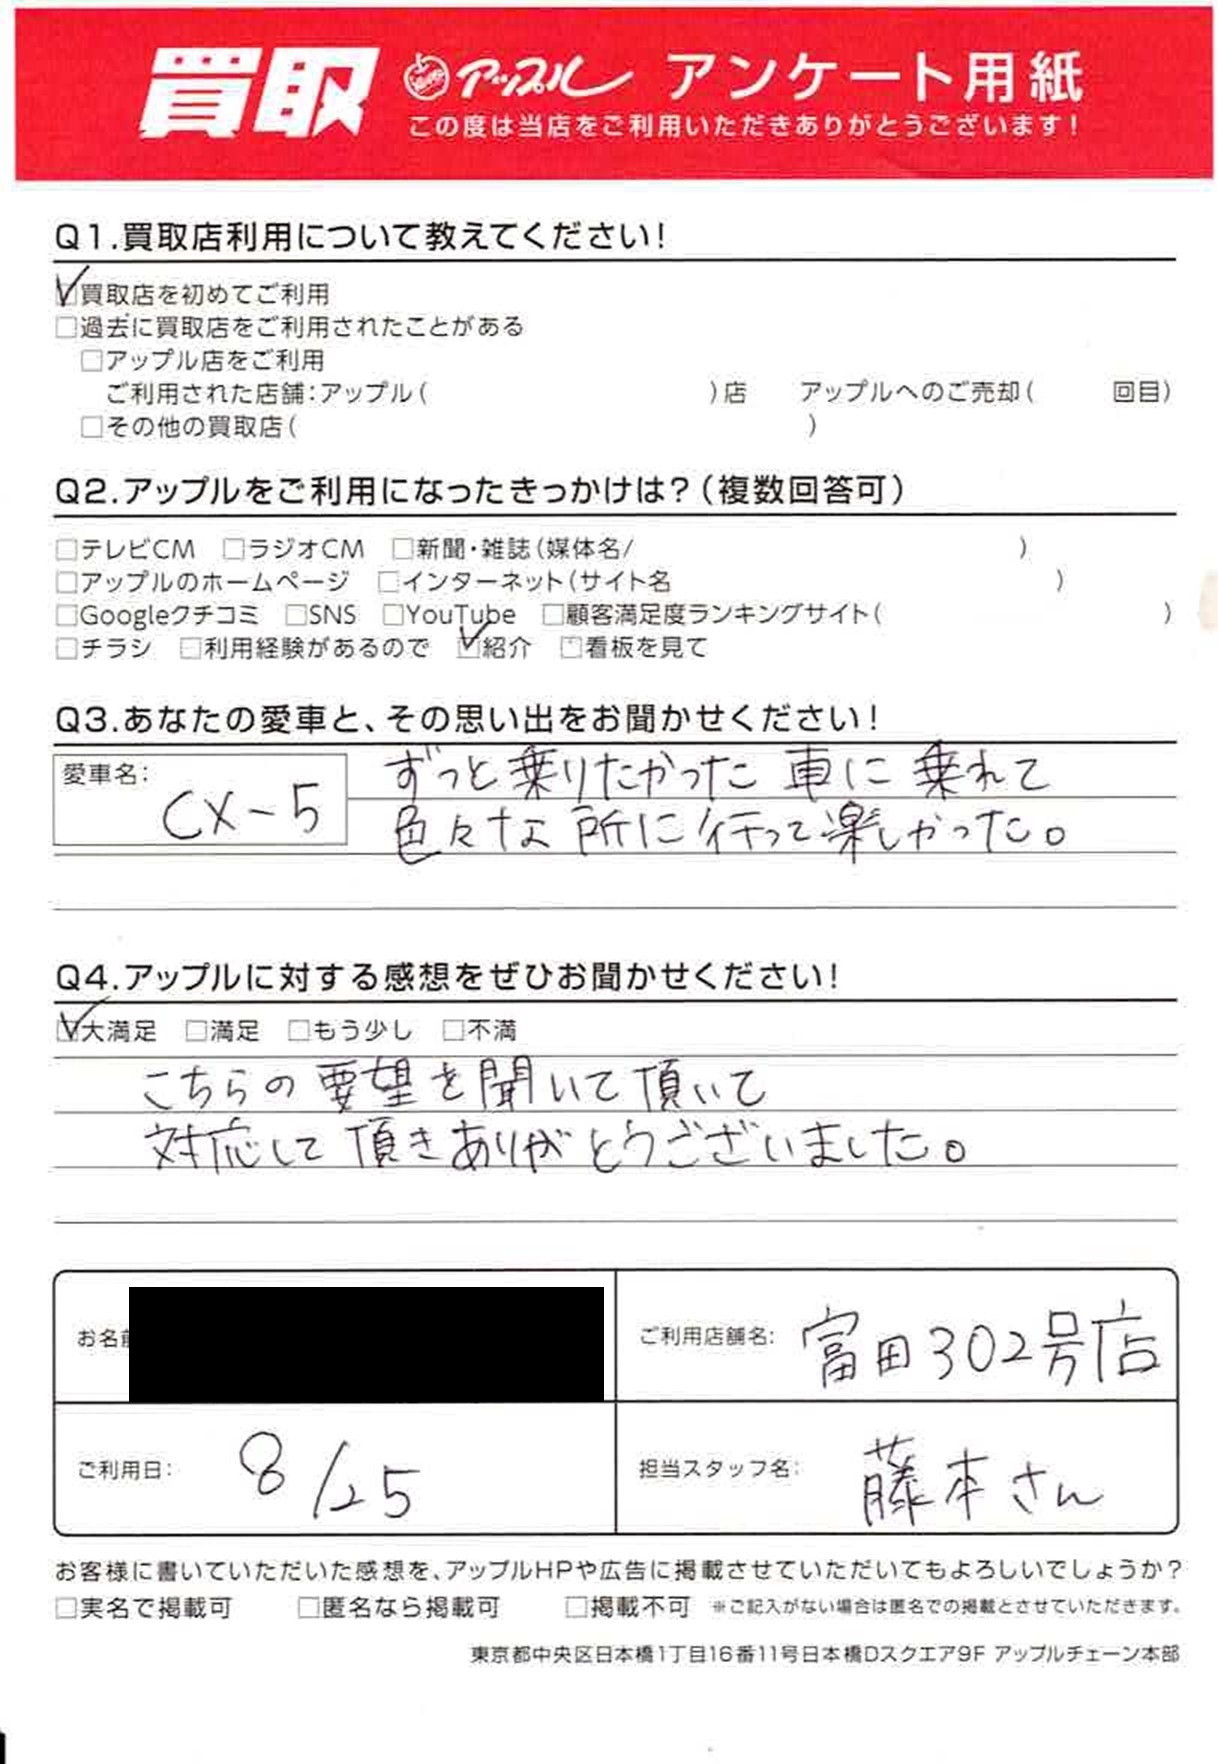 買取 アップル アンケート用紙
この度は当店をご利用いただきありがとうございます!
Q1.買取店利用について教えてください!
☑買取店を初めてご利用
□過去に買取店をご利用されたことがある
□アップル店をご利用
ご利用された店舗:アップル( )店 アップルへのご売却( 回目)
□その他の買取店( )
Q2.アップルをご利用になったきっかけは?(複数回答可)
□テレビCM □ラジオCM □新聞・雑誌(媒体名/ )
□アップルのホームページ □インターネット(サイト名 )
□Googleクチコミ □SNS □YouTube □顧客満足度ランキングサイト( )
□チラシ □利用経験があるので ☑紹介 □看板を見て
Q3.あなたの愛車と、その思い出をお聞かせください!
愛車名: CX-5
ずっと乗りたかった車に乗れて
色々な所に行って楽しかった。
Q4.アップルに対する感想をぜひお聞かせください!
☑大満足 □満足 □もう少し □不満
こちらの要望を聞いて頂いて
対応して頂きありがとうございました。
お名前
ご利用店舗名: 富田302号店
ご利用日: 8/25
担当スタッフ名: 藤本さん
お客様に書いていただいた感想を、アップルHPや広告に掲載させていただいてもよろしいでしょうか?
□実名で掲載可 □匿名なら掲載可 □掲載不可 ※ご記入がない場合は匿名での掲載とさせていただきます。
東京都中央区日本橋1丁目16番11号日本橋Dスクエア9F アップルチェーン本部